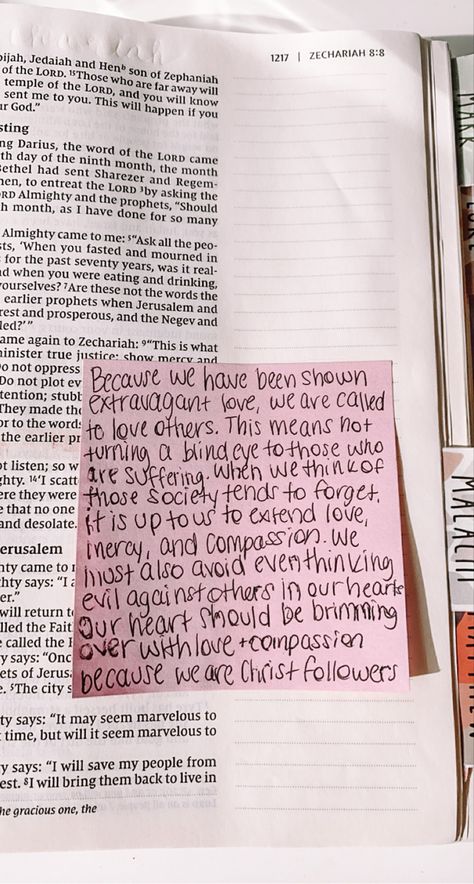 1217 | ZECHARIAH 8:8
bijah, Jedaiah and Henᵇ son of Zephaniah
of the LORD. ¹⁵Those who are far away will
temple of the LORD, and you will know
sent me to you. This will happen if you
ur God."
sting
ng Darius, the word of the LORD came
th day of the ninth month, the month
Bethel had sent Sharezer and Regem-
hen, to entreat the LORD ³by asking the
ORD Almighty and the prophets, "Should
h month, as I have done for so many
Almighty came to me: ⁵"Ask all the peo-
sts, 'When you fasted and mourned in
s for the past seventy years, was it real-
d when you were eating and drinking,
yourselves? ⁷Are these not the words the
earlier prophets when Jerusalem and
rest and prosperous, and the Negev and
led?'"
ame again to Zechariah: ⁹"This is what
minister true justice; show mercy and
o not oppress
Do not plot ev
tention; stubb
They made the
or to the words
the earlier pr
ot listen; so w
ghty. ¹⁴'I scatt
ere they were
e that no one
and desolate.
erusalem
hty came to
hty says: "I a
er."
will return t
lled the Fait
e called the
y says: "Onc
ets of Jerusa
e. ⁵The city s
ty says: "It may seem marvelous to
t time, but will it seem marvelous to
y says: "I will save my people from
est. ⁸I will bring them back to live in
he gracious one, the
Because we have been shown
extravagant love, we are called
to love others. This means not
turning a blind eye to those who
are suffering. When we think of
those society tends to forget,
it is up to us to extend love,
mercy, and compassion. We
must also avoid even thinking
evil against others in our hearts
our heart should be brimming
over with love + compassion
because we are Christ followers
MARK
LUKE
MALACHI
MATTHEW